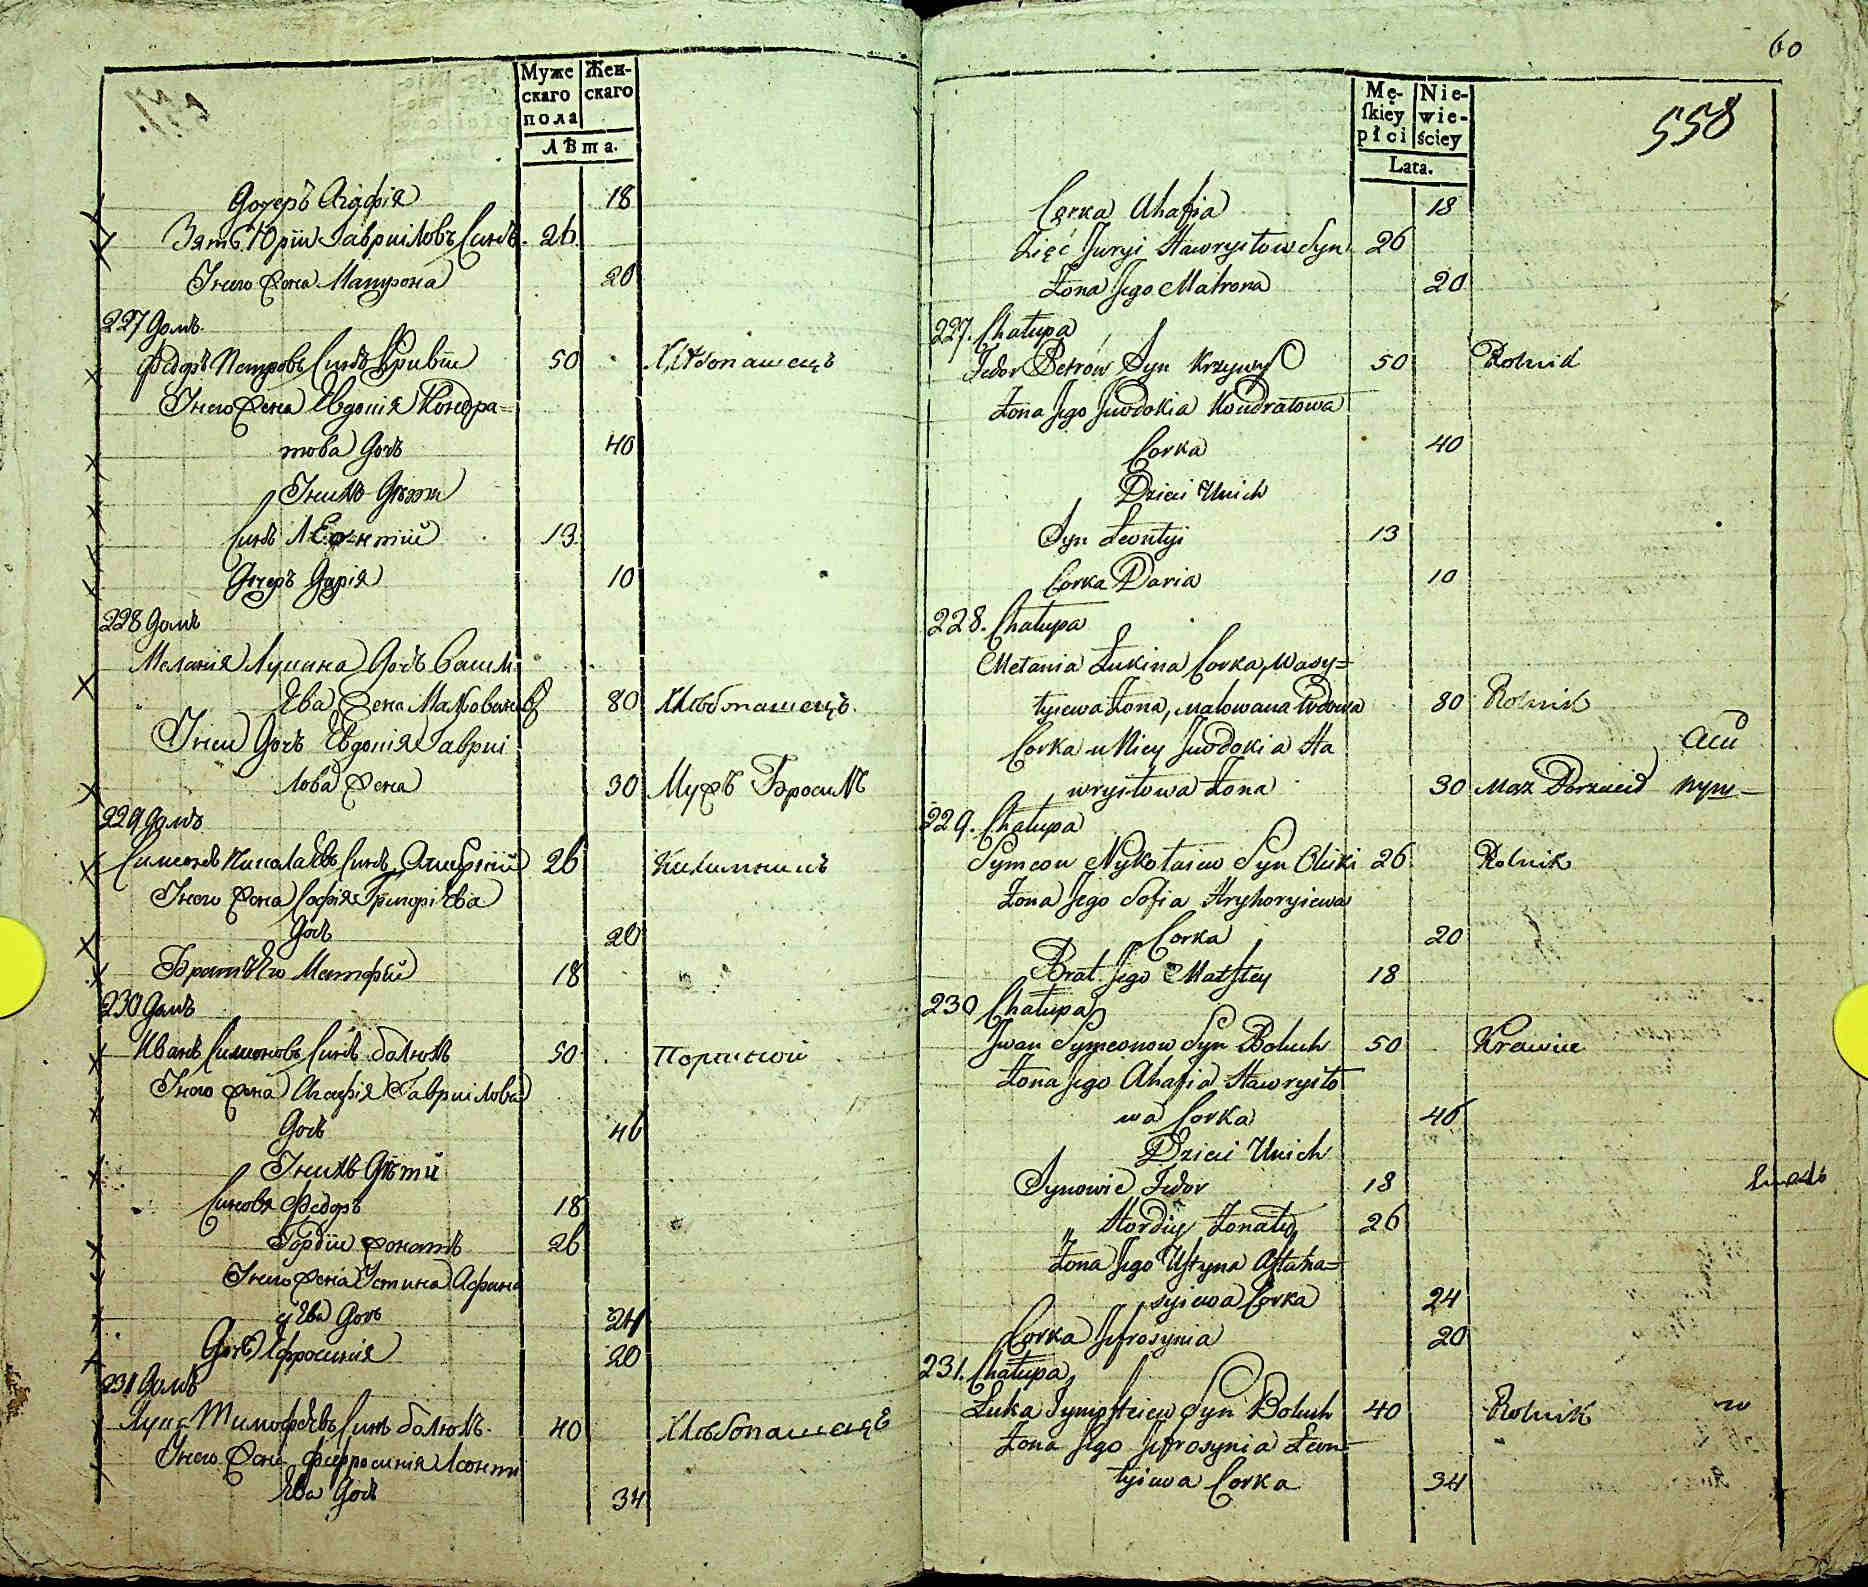 Муже
скаго
пола
Жен-
скаго
Лѣта.
Дочеръ Агафія 18
Зять Юрій Гавриловъ Синъ 26
Унего Жена Матрона 20
227 Домъ
Федоръ Петровъ Синъ Кривій 50 Хлѣбопашецъ
Унего Жена Евдокія Кондра=
това Дочь 40
Унихъ Дѣти
Синъ Леонтій 13
Дочеръ Дарія 10
228 Домъ
Меланія Лукина Дочь Васил
ѣва Жена Малована 80 Хлѣбопашецъ
Унеи Дочь Евдокія Гаврі
лова Жена 30 Мужъ Бросилъ
229 Домъ
Симеонъ Николаевъ Синъ 26
Унего Жена Софія Григоріева
Дочь 20
Братъ Его Матфей 18
230 Домъ
Иванъ Симеоновъ Синъ Болюхъ 50 Портной
Унего Жена Агафія Гаврилова
Дочь 46
Унихъ Дѣти
Синовя Федоръ 18
Гордій Жонатъ 26
Унего Жена Устина Афана
сіева Дочь 24
Дочь Ефросинія 20
231 Домъ
Лука Тимофѣевъ Синъ Болюхъ 40 Хлѣбопашецъ
Унего Жена Фефросинія Леонти
ева Дочь 34
60
Mę-
ſkiey
płci
Nie-
wie-
ściey
Lata.
558
Corka Ahafia 18
Zięć Juryi Hawryłow Syn 26
Żona Jego Matrona 20
227. Chałupa
Fedor Petrów Syn Krzywy 50 Rolnik
Żona Jego Jewdokia Kondratowa
Corka 40
Dzieci Unich
Syn Leontyi 13
Corka Daria 10
228. Chałupa
Metania Łukina Corka, Wasy=
lyiewa Żona, Malowana Wdowa 80 Rolnik
Corka u Niey Jewdokia Ha
wryłowa Żona 30 Mąz Porzucił
229. Chałupa
Symeon Nykołaiew Syn 26 Rolnik
Żona Jego Sofia Hryhoryiewa
Corka 20
Brat Jego Matftey 18
230 Chałupa
Jwan Symeonow Syn Boluch 50 Krawiec
Żona Jego Ahafia Hawryło
wa Corka 46
Dzieci Unich
Synowie Fedor 18
" Hordiy Żonaty 26
Żona Jego Ustyna Aftana=
syiewa Corka 24
Corka Jefrosynia 20
231. Chałupa
Łuka Tymofteiew Syn Boluch 40 Rolnik
Żona Jego Jefrosynia Leon=
tyiewa Corka 34